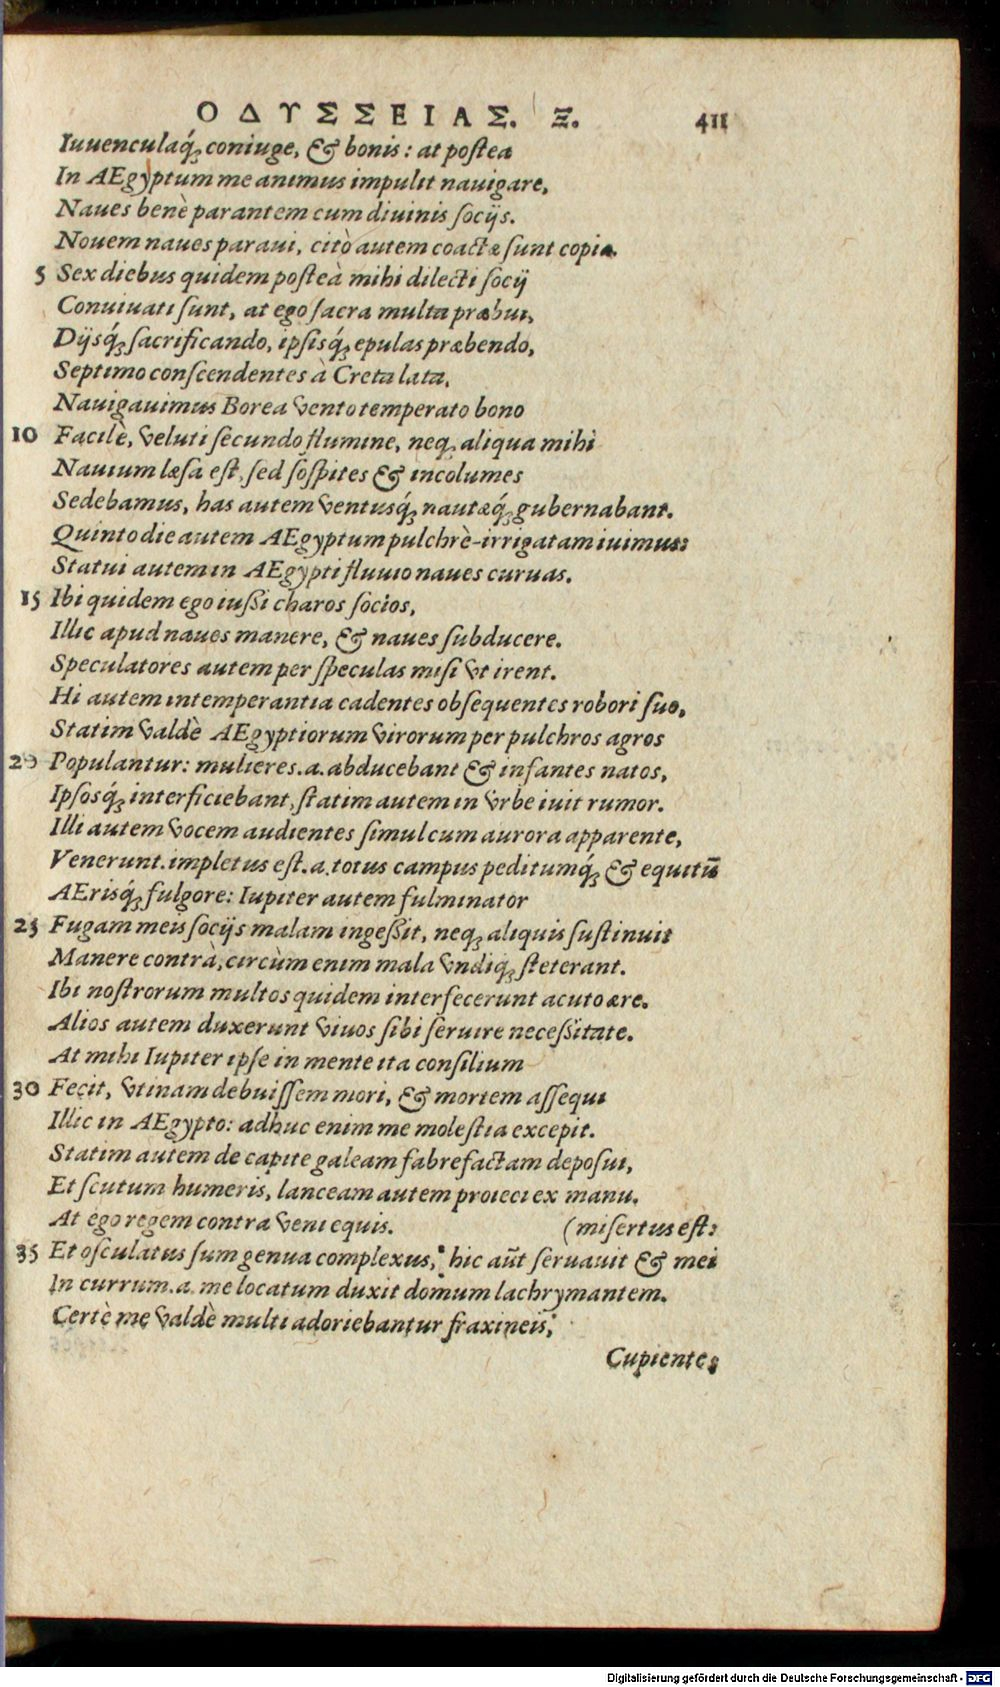 ΟΔΥΣΣΕΙΑΣ. Ξ. 411
Iuuenculaq́; coniuge, & bonis: at postea
In AEgyptum me animus impulit nauigare,
Naues benè parantem cum diuinis socijs.
Nouem naues paraui, citò autem coactæ sunt copiæ.
5 Sex diebus quidem posteà mihi dilecti socij
Conuiuati sunt, at ego sacra multa præbui,
Dijsq́; sacrificando, ipsisq́; epulas præbendo,
Septimo conscendentes à Creta lata,
Nauigauimus Borea vento temperato bono
10 Facilè, veluti secundo flumine, neq; aliqua mihi
Nauium læsa est, sed sospites & incolumes
Sedebamus, has autem ventusq́; nautæq́; gubernabant.
Quinto die autem AEgyptum pulchrè-irrigatam iuimus:
Statui autem in AEgypti fluuio naues curuas.
15 Ibi quidem ego iussi charos socios,
Illic apud naues manere, & naues subducere.
Speculatores autem per speculas misi vt irent.
Hi autem intemperantia cadentes obsequentes robori suo,
Statim valdè AEgyptiorum virorum per pulchros agros
20 Populantur: mulieres.a.abducebant & infantes natos,
Ipsosq́; interficiebant, statim autem in vrbe iuit rumor.
Illi autem vocem audientes simul cum aurora apparente,
Venerunt.impletus est.a.totus campus peditumq́; & equitū
AErisq́; fulgore: Iupiter autem fulminator
25 Fugam meis socijs malam ingessit, neq; aliquis sustinuit
Manere contrà, circùm enim mala vndiq; steterant.
Ibi nostrorum multos quidem intersecerunt acuto ære.
Alios autem duxerunt viuos sibi seruire necessitate.
At mihi Iupiter ipse in mente ita consilium
30 Fecit, vtinam debuissem mori, & mortem assequi
Illic in AEgypto: adhuc enim me molestia excepit.
Statim autem de capite galeam fabrefactam deposui,
Et scutum humeris, lanceam autem proieci ex manu.
At ego regem contra veni equis. (misertus est:
35 Et osculatus sum genua complexus, hic aūt seruauit & mei
In currum.a.me locatum duxit domum lachrymantem.
Certè me valdè multi adoriebantur fraxineis,
Cupientes
Digitalisierung gefördert durch die Deutsche Forschungsgemeinschaft - DFG